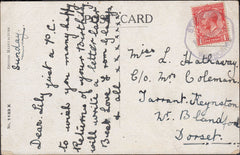 CARD
BRITISH MANUFACTURE
Sunday.
Dear Lily just a P.C.
to wish you many happy
Returns of your Birthday
will write a letter later
Best Love & x from
Miss L. Hathaway
C/o. Mrs Coleman
Tarrant Keynston
Nr. Blandford
Dorset.